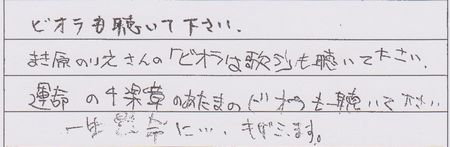 ビオラも聴いて下さい.
まき原のりえさんの「ビオラは歌う」も聴いて下さい.
運命の4楽章のあたまのビオラも聴いて下さい
一生懸命に…, ます.